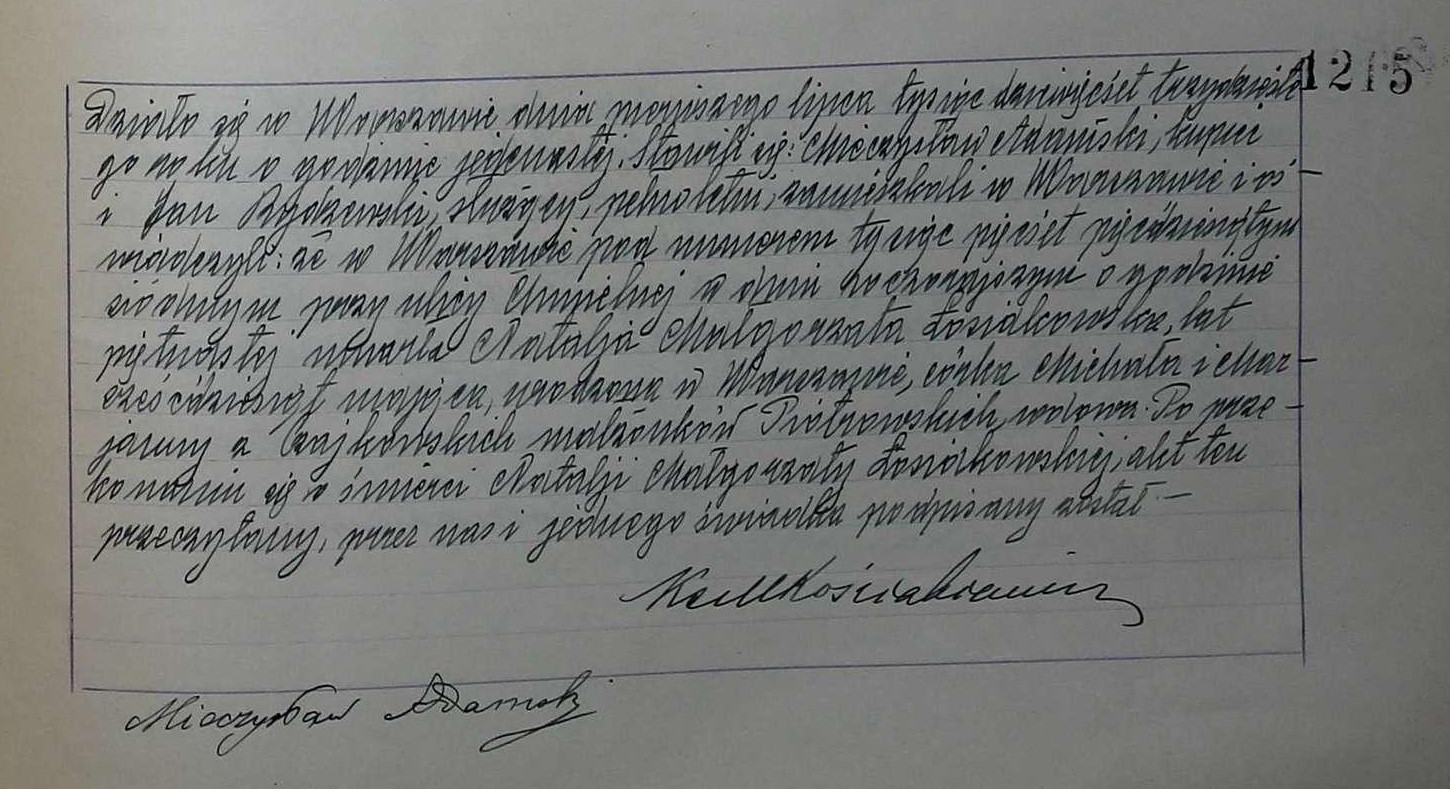 1215
Działo się w Warszawie dnia pierwszego lipca tysiąc dziewięćset trzydziestego
go roku o godzinie jedenastej. Stawili się: Mieczysław Adamski, kupiec
i Jan Rydzewski, służący, pełnoletni, zamieszkali w Warszawie i oś-
wiadczyli: że w Warszawie pod numerem tysiąc pięćset pięćdziesiątym
siódmym przy ulicy Chmielnej w dniu wczorajszym o godzinie
piętnastej umarła Natalja Małgorzata Łosiakowska, lat
sześćdziesiąt mająca, urodzona w Warszawie, córka Michała i Mar-
janny z Czajkowskich małżonków Piotrowskich, wdowa. Po prze-
konaniu się o śmierci Natalji Małgorzaty Łosiakowskiej, akt ten
przeczytany, przez nas i jednego świadka podpisany został.—
Mieczysław Adamski